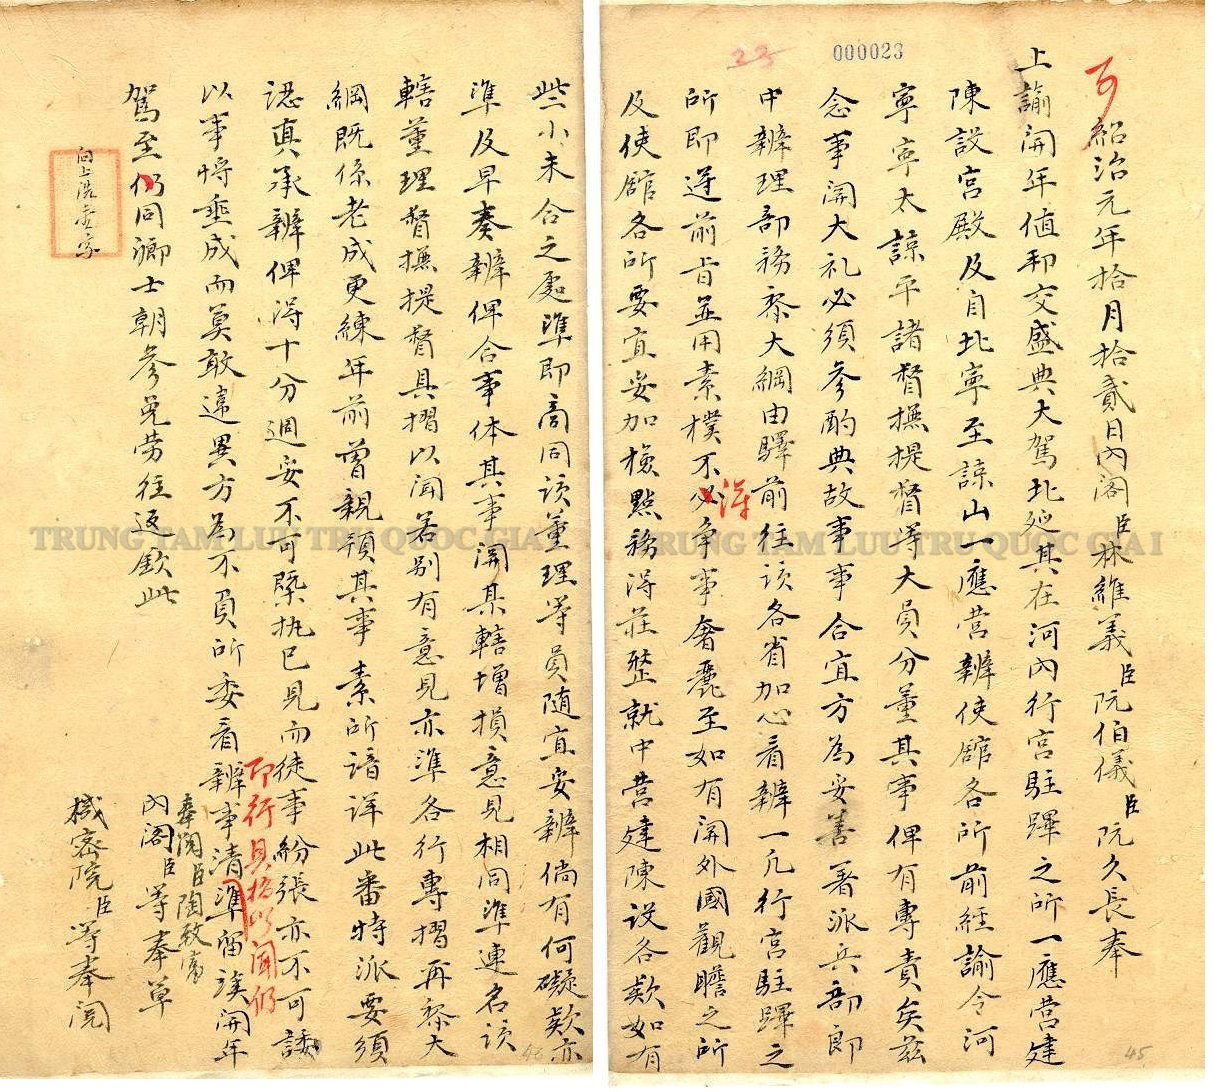 000023
23
可
紹治元年拾月拾貳日內閣臣林維義臣阮伯儀臣阮久長奉
上諭開年值邦交盛典大駕北廵其在河內行宮駐蹕之所一應營建
陳設宮殿及自北寧至諒山一應營辦使館各所前經諭令河
寧寧太諒平諸督撫提督等大員分董其事俾有專責矣茲
念事関大礼必須參酌典故事事合宜方為妥善著派兵部郎
中辦理部務黎大綱由驛前往該各省加心看辦一凡行宮駐蹕之
所即遵前旨並用素樸不必爭事奢麗至如有関外國觀瞻之所
及使館各所要宜妥加檢點務得莊整就中營建陳設各款如有
45
些小未合之處準即商同該董理等員隨宜妥辦倘有何礙款亦
準及早奏辦俾合事体其事関某轄增損意見相同準連名該
轄董理督撫提督具摺以聞若別有意見亦準各行專摺再黎大
綱既係老成更練年前曾親預其事素所諳詳此番特派要須
認真承辦俾得十分週妥不可槩执己見而徒事紛張亦不可諉
即行具摺以聞仍
以事將垂成而莫敢違異方為不負所委看辦事清準留候開年
駕至仍同鄉士朝參免劳往返欽此
奉閱臣陶致富
內閣臣等奉草
機密院臣等奉閱
46
TRUNG TAM LUU TRU QUOC GIA I
TRUNG TAM LUU TRU QUOC GIA I